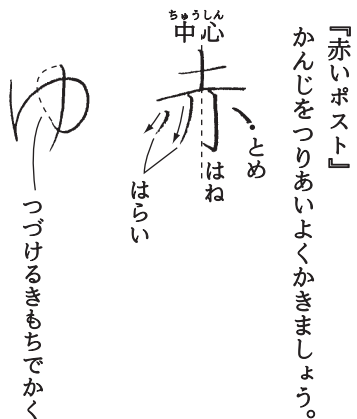 『赤いポスト』
かんじをつりあいよくかきましょう。
ちゅうしん
中心
赤
とめ
はね
はらい
ゆ
つづけるきもちでかく